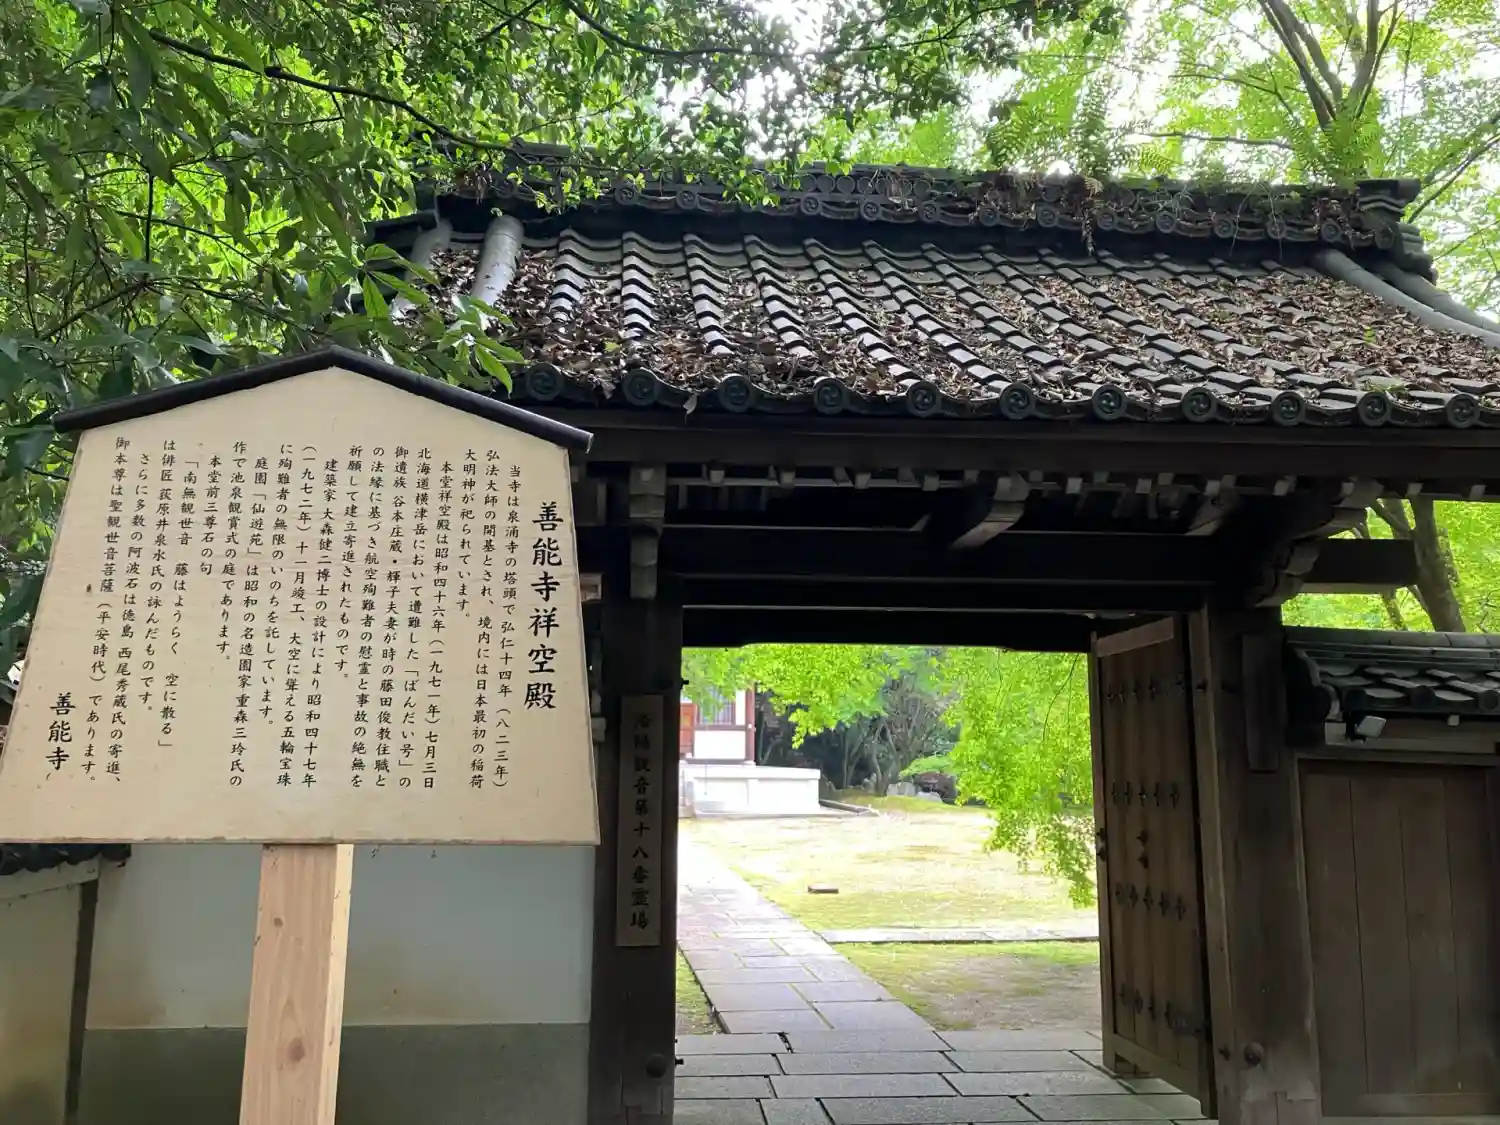 善能寺祥空殿
当寺は泉涌寺の塔頭で弘仁十四年（八二三年）
弘法大師の開基とされ、境内には日本最初の稲荷
大明神が祀られています。
本堂祥空殿は昭和四十六年（一九七一年）七月三日
北海道横津岳において遭難した「ばんだい号」の
御遺族 谷本庄蔵・輝子夫妻が時の藤田俊教住職と
の法縁に基づき航空殉難者の慰霊と事故の絶無を
祈願して建立寄進されたものです。
建築家 大森健二博士の設計により昭和四十七年
（一九七二年）十一月竣工、大空に聳える五輪宝珠
に殉難者の無限のいのちを託しています。
庭園「仙遊苑」は昭和の名造園家 重森三玲氏の
作で池泉観賞式の庭であります。
本堂前三尊石の句
「南無観世音 藤はようらく 空に散る」
は俳匠 荻原井泉水氏の詠んだものです。
さらに多数の阿波石は徳島 西尾秀蔵氏の寄進、
御本尊は聖観世音菩薩（平安時代）であります。
善能寺
洛陽観音第十八番霊場